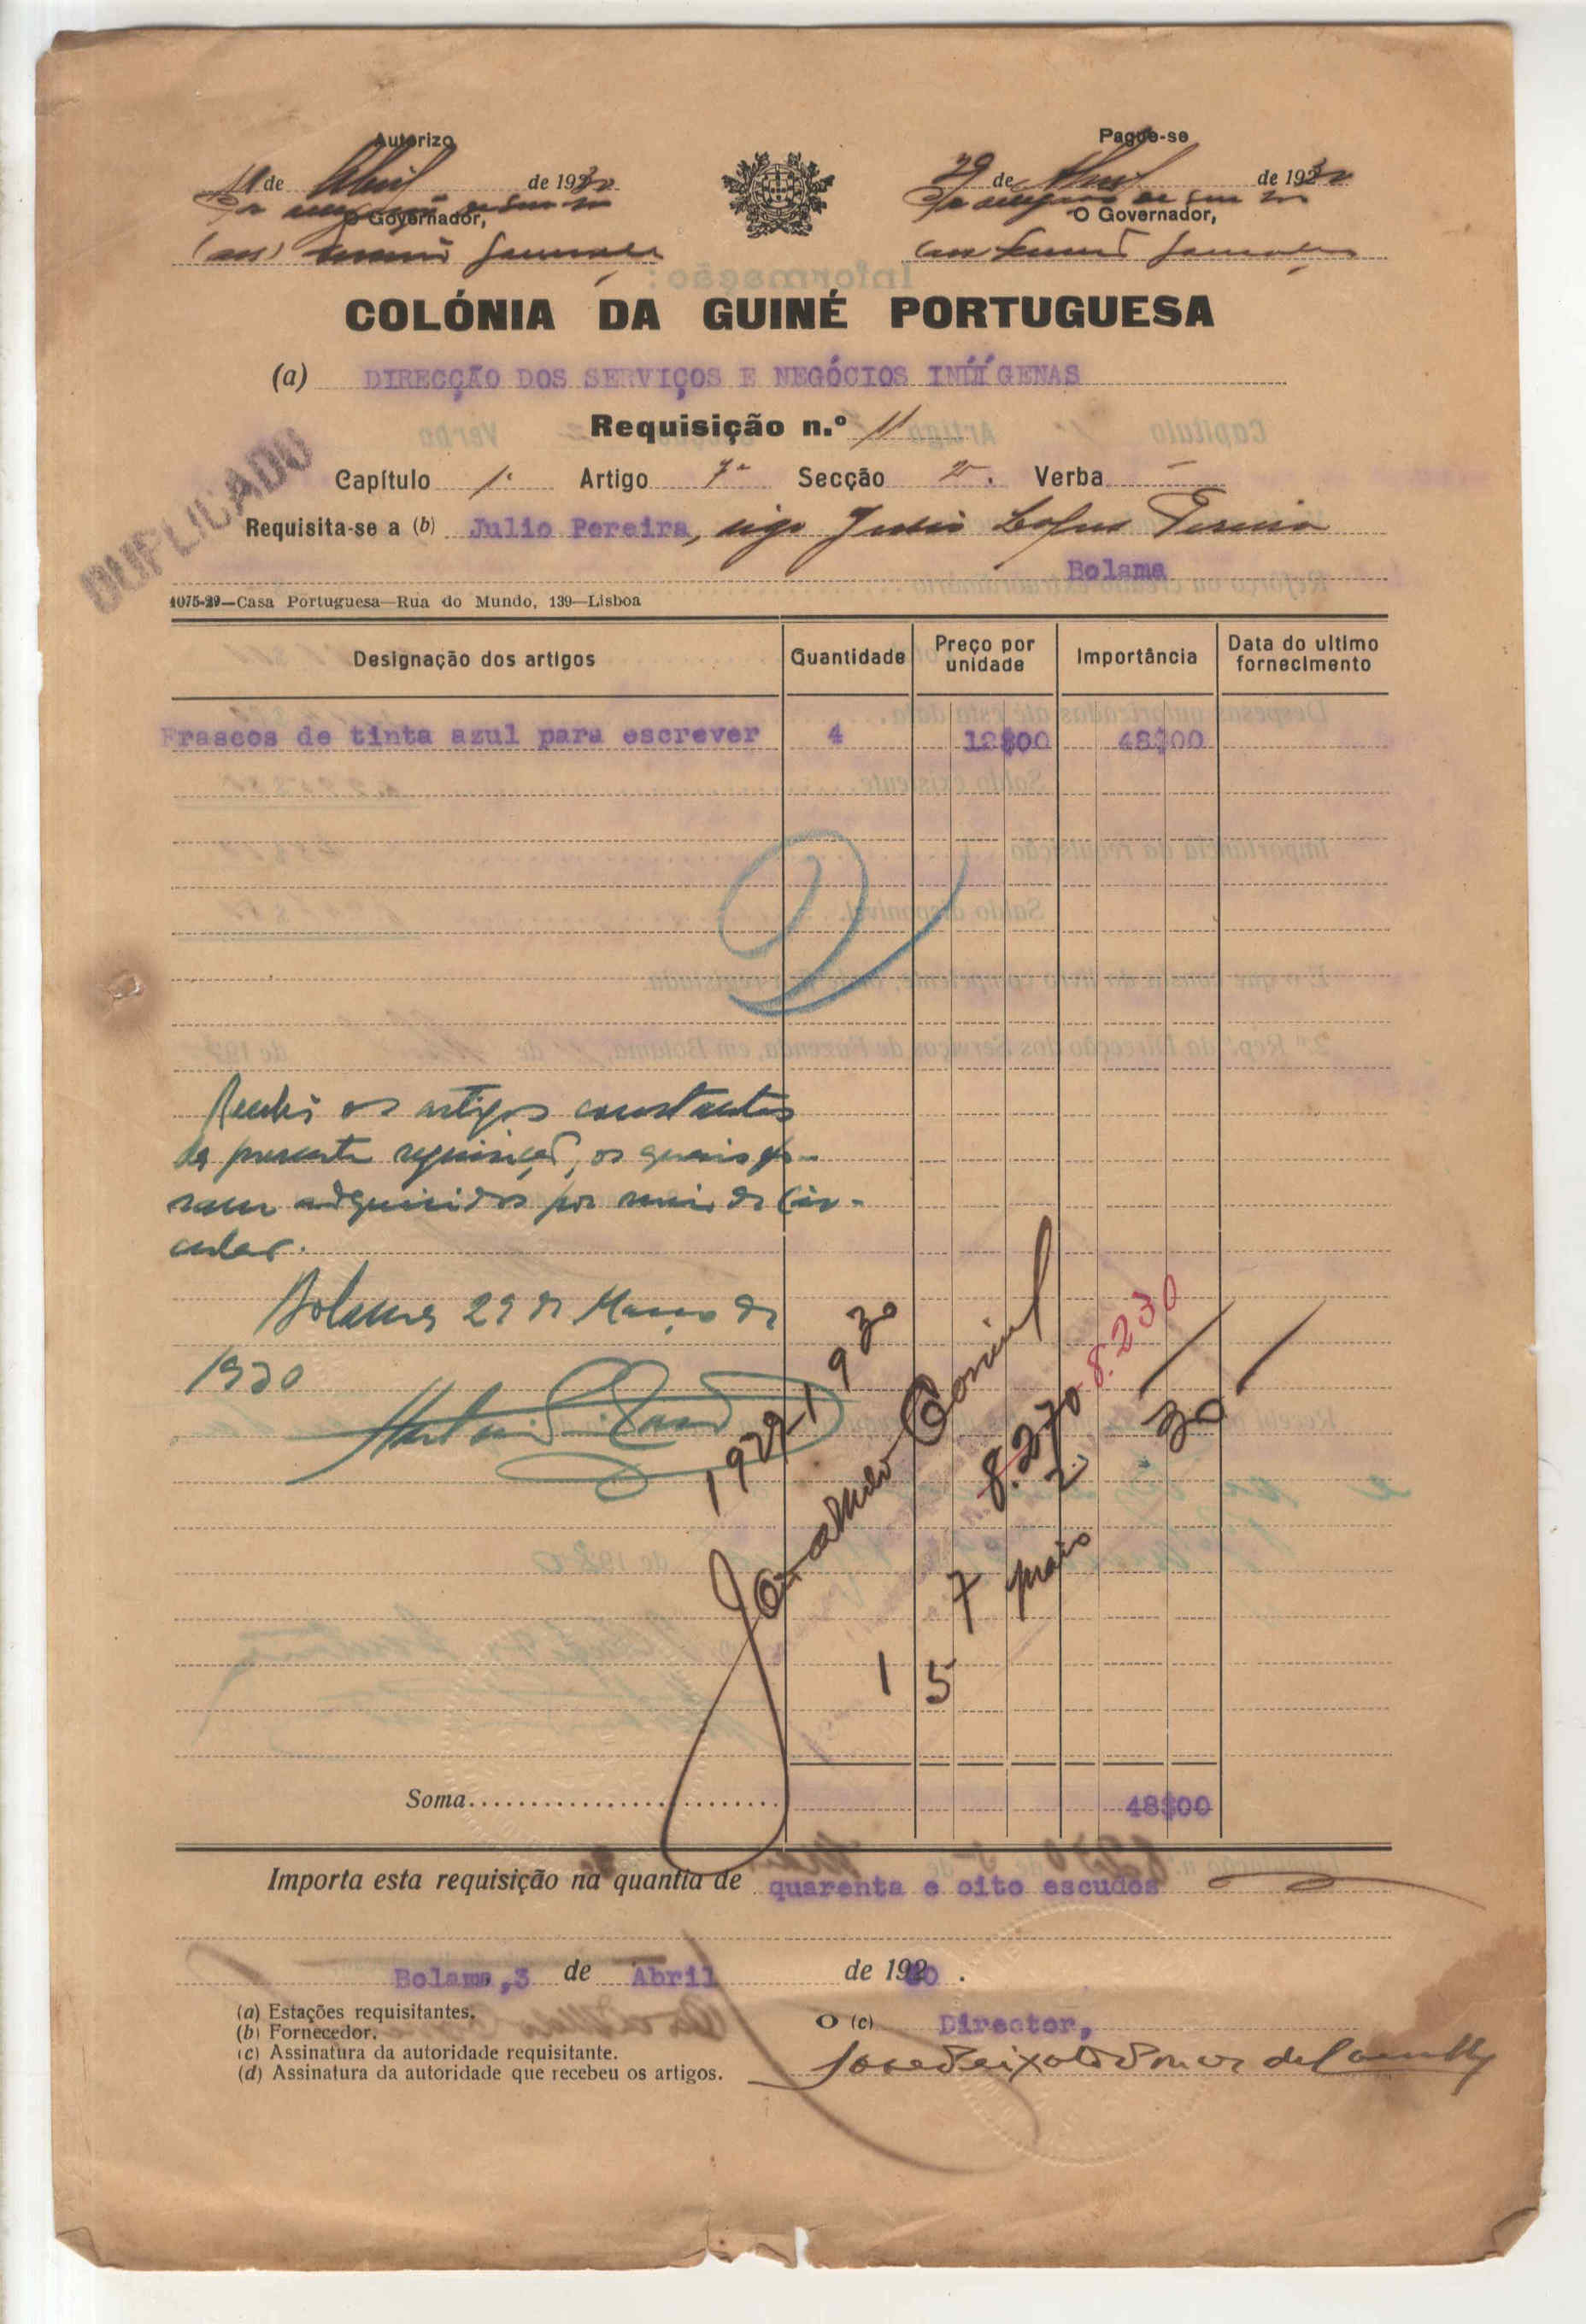 Autorizo
11 de Abril de 1930
O Governador,
Pague-se
29 de Abril de 1930
O Governador,
COLÓNIA DA GUINÉ PORTUGUESA
(a) DIRECÇÃO DOS SERVIÇOS E NEGÓCIOS INDÍGENAS
Requisição n.º 11
DUPLICADO
Capítulo 1.º Artigo 7.º Secção 2.ª Verba —
Requisita-se a (b) Julio Pereira, digo Julio Lopes Pereira
Bolama
1075-29—Casa Portuguesa—Rua do Mundo, 139—Lisboa
Designação dos artigos Quantidade Preço por unidade Importância Data do ultimo fornecimento
Frascos de tinta azul para escrever 4 12$00 48$00
Recebi os artigos constantes
da presente requisição, os quais fo-
ram adquiridos por meio de Cir-
cular.
Bolama, 29 de Março de
1930
1929-1930
8.270 8.230
7 Maio 30
1 5
Soma 48$00
Importa esta requisição na quantia de quarenta e oito escudos
Bolama, 3 de Abril de 1930.
(a) Estações requisitantes.
(b) Fornecedor.
(c) Assinatura da autoridade requisitante.
(d) Assinatura da autoridade que recebeu os artigos.
O (c) Director,